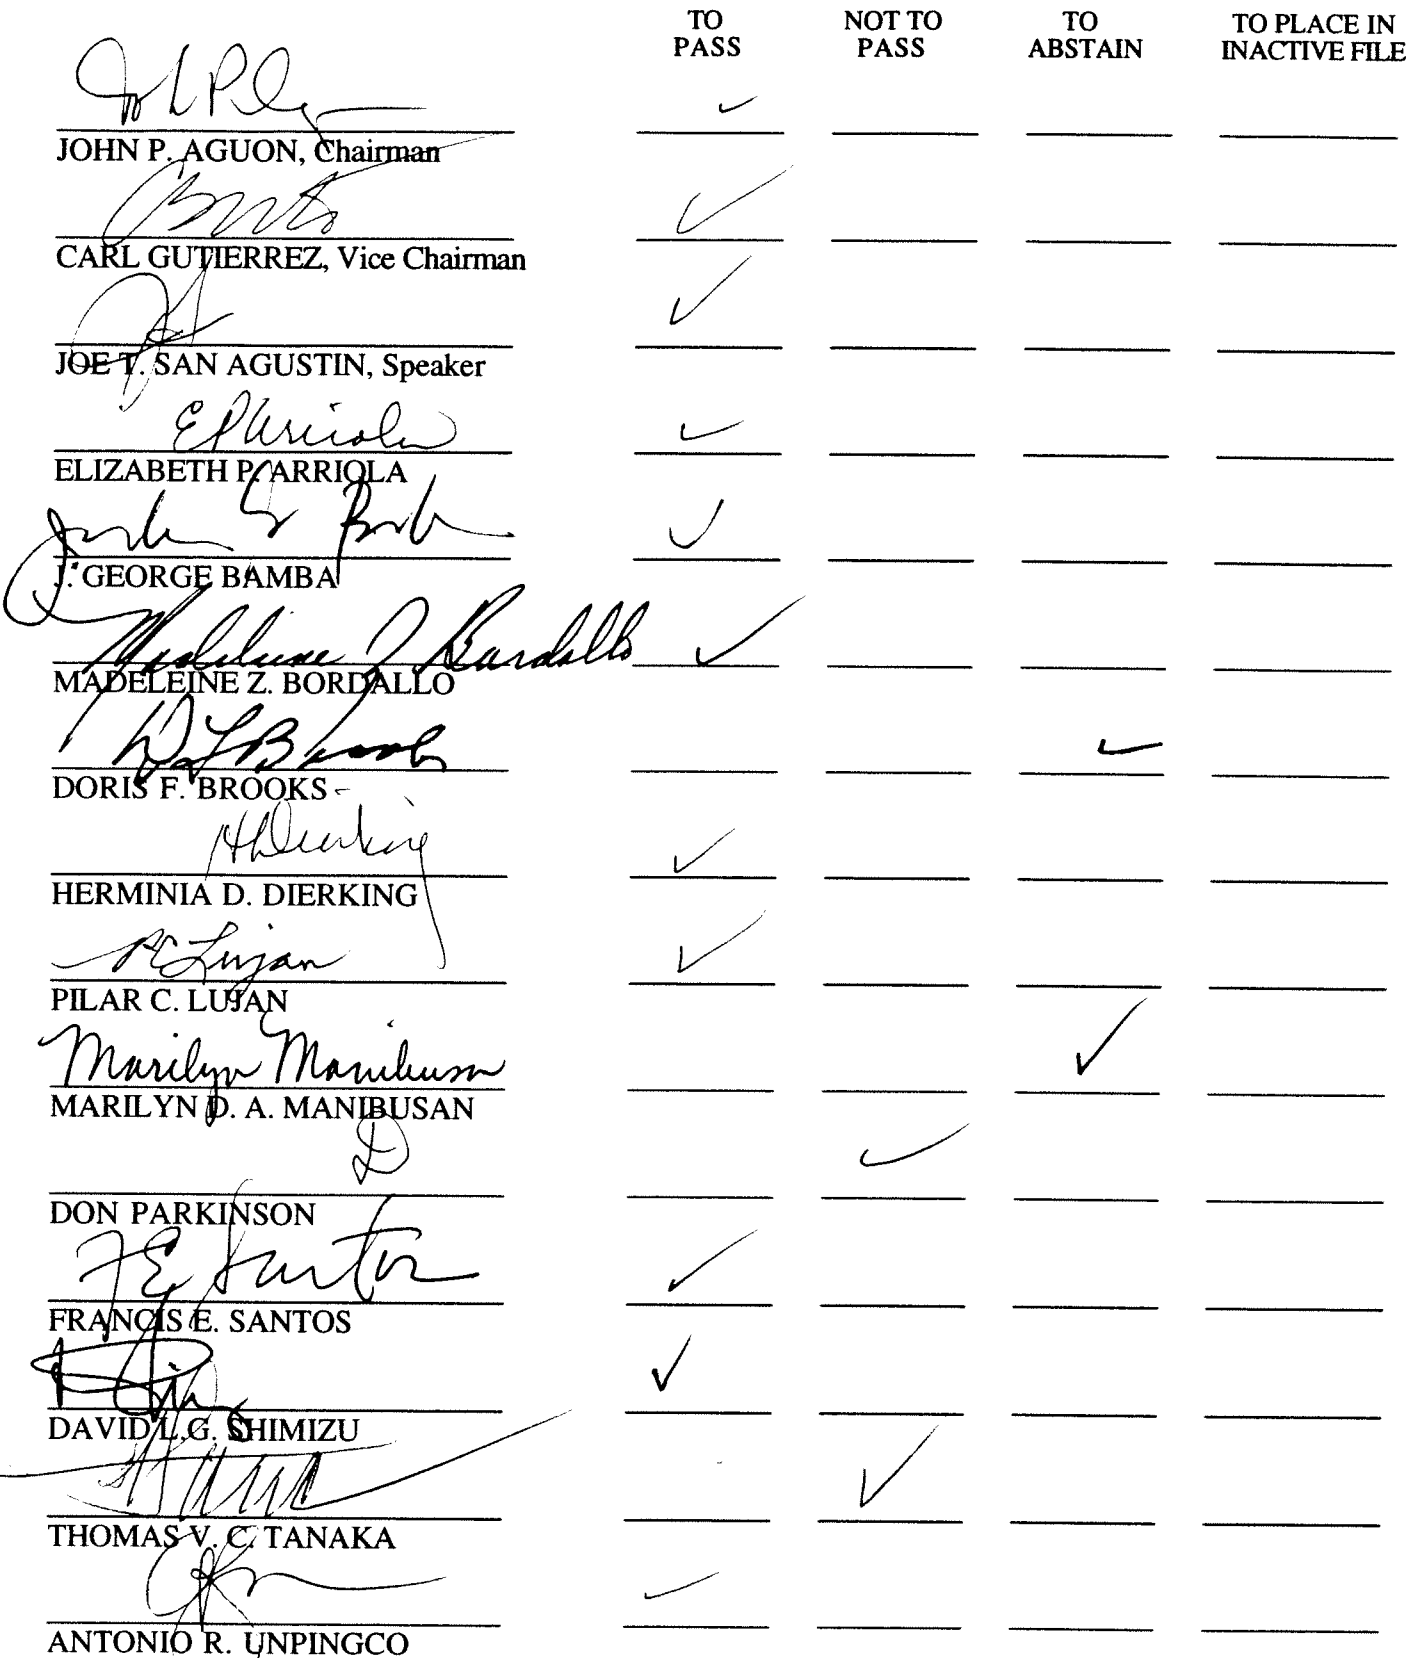 TO PASS NOT TO PASS TO ABSTAIN TO PLACE IN INACTIVE FILE
✓
JOHN P. AGUON, Chairman
✓
CARL GUTIERREZ, Vice Chairman
✓
JOE T. SAN AGUSTIN, Speaker
EPArriola ✓
ELIZABETH P. ARRIOLA
✓
J. GEORGE BAMBA
Madeleine Z Bordallo ✓
MADELEINE Z. BORDALLO
✓
DORIS F. BROOKS
HDierking ✓
HERMINIA D. DIERKING
PC Lujan ✓
PILAR C. LUJAN
Marilyn Manibusan ✓
MARILYN D. A. MANIBUSAN
✓
DON PARKINSON
F E Santos ✓
FRANCIS E. SANTOS
✓
DAVID L.G. SHIMIZU
✓
THOMAS V. C. TANAKA
✓
ANTONIO R. UNPINGCO